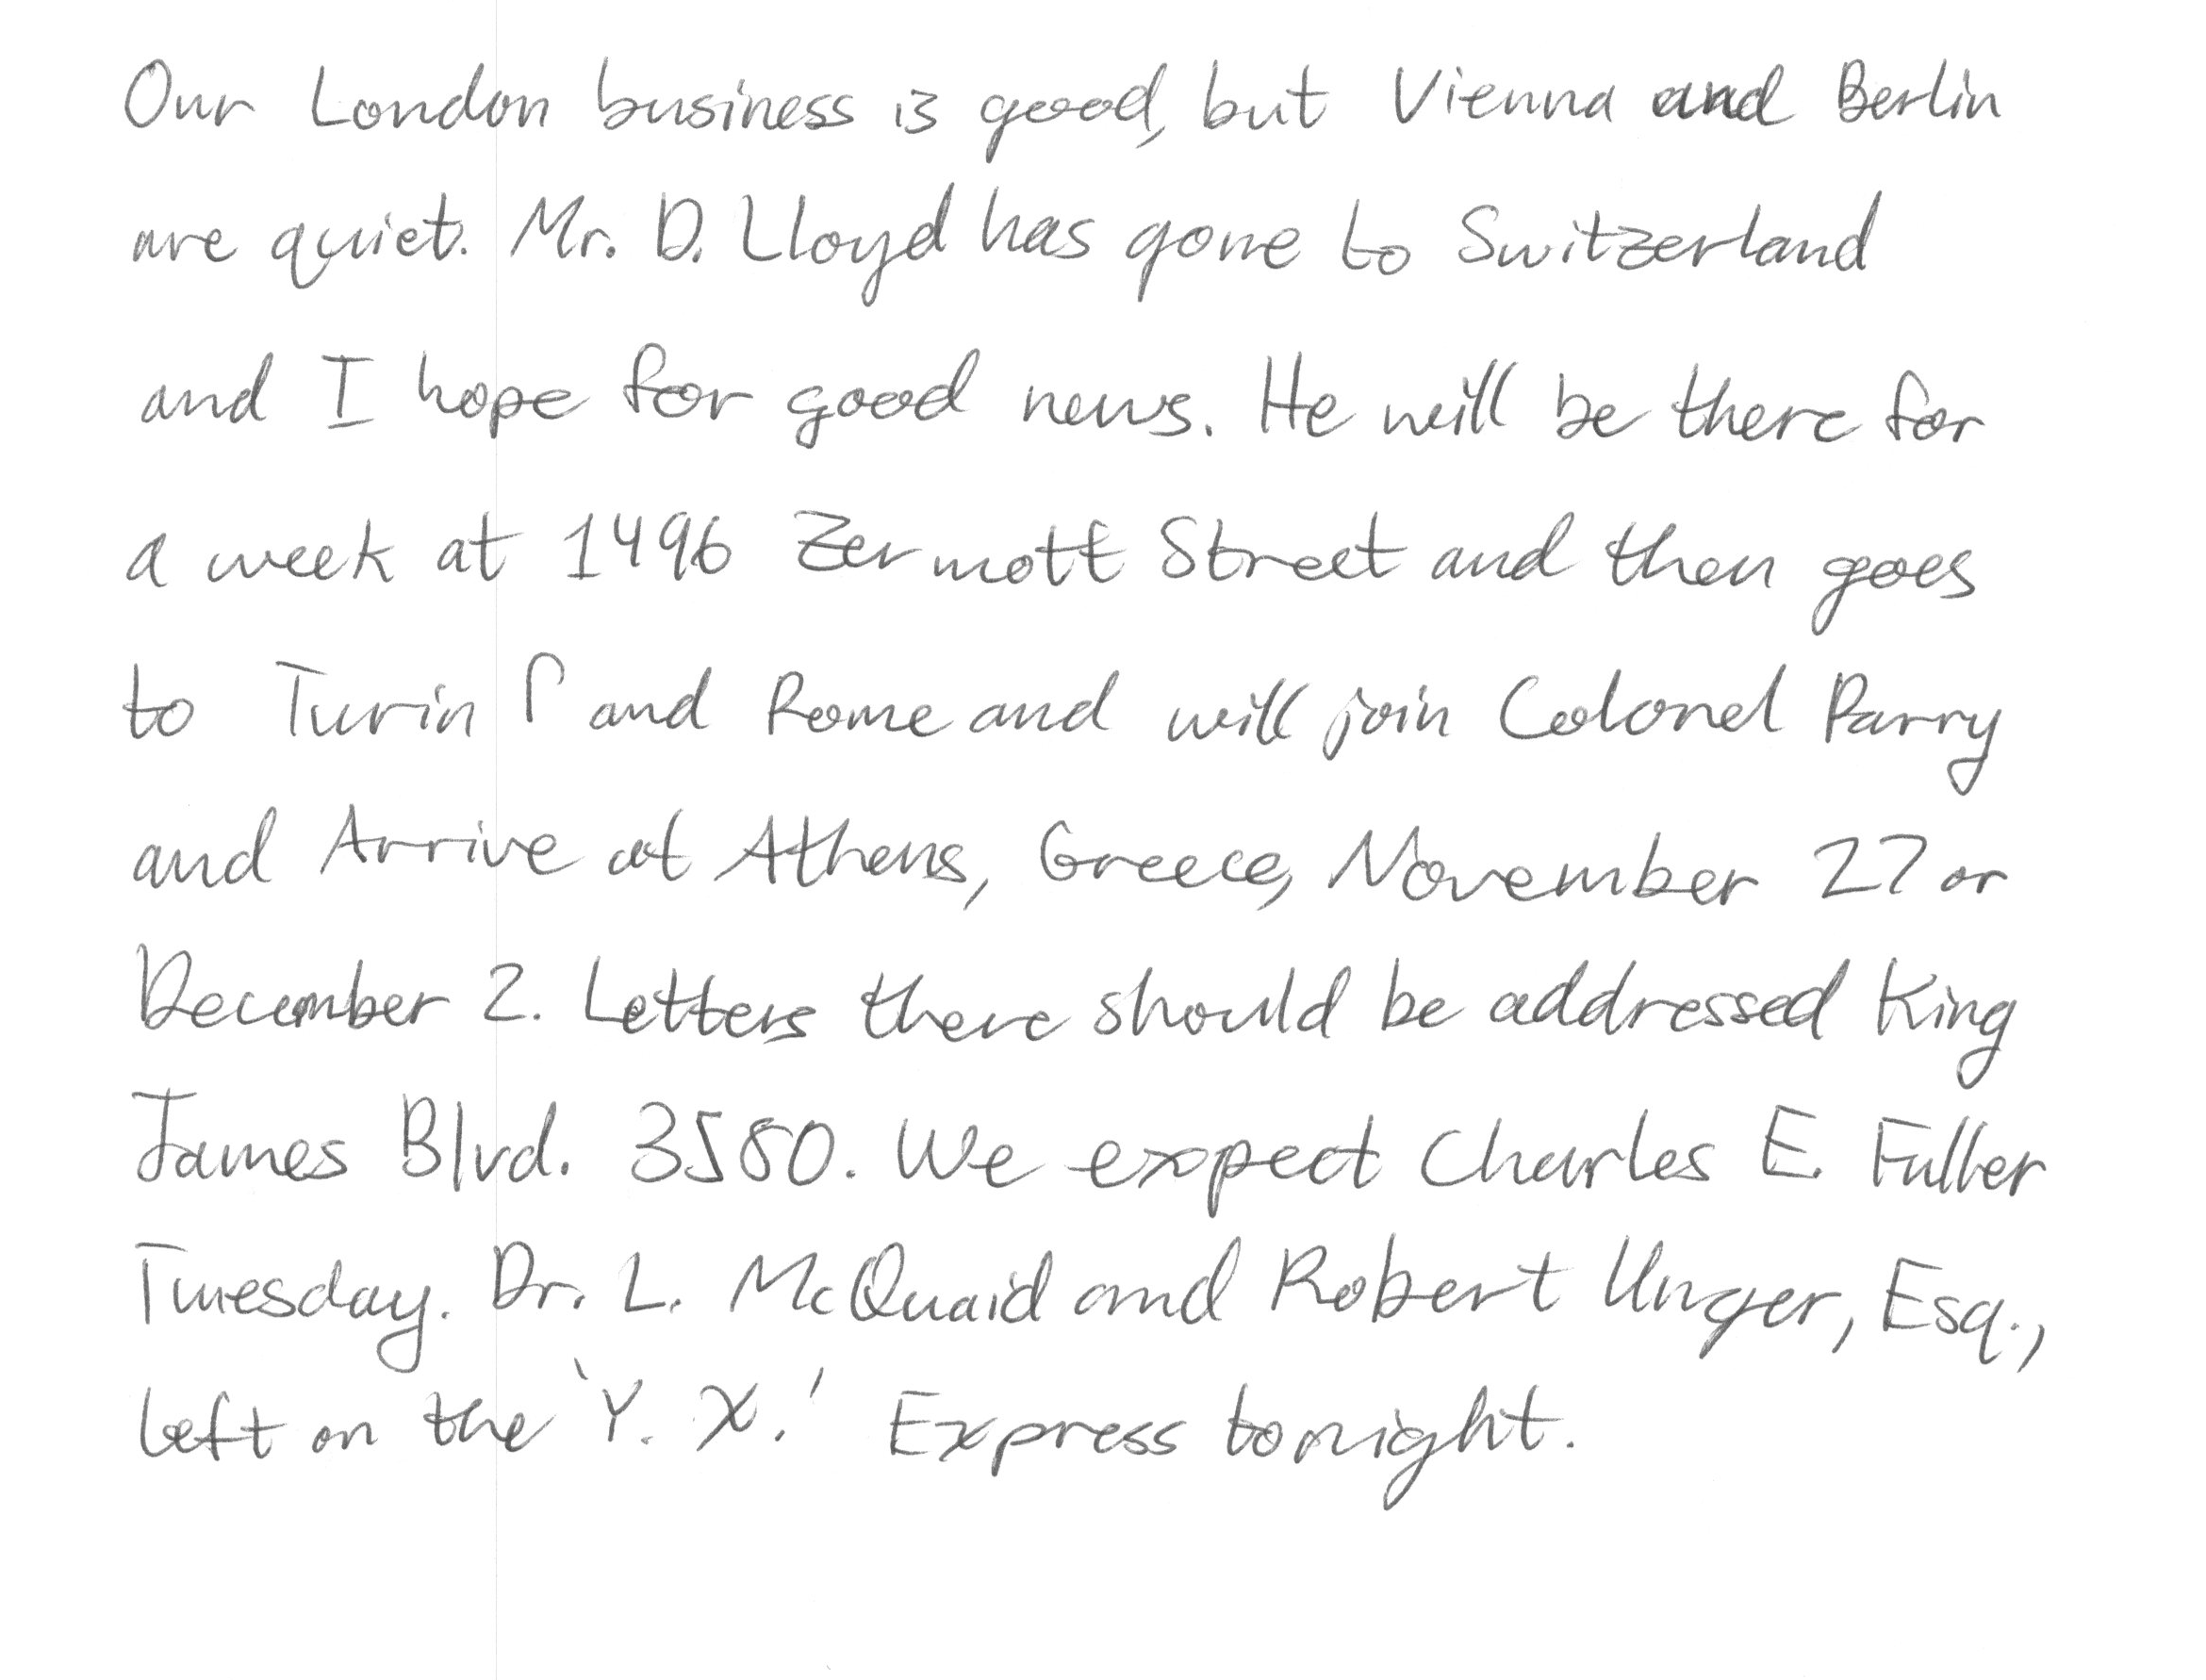 Our London business is good, but Vienna and Berlin
are quiet. Mr. D. Lloyd has gone to Switzerland
and I hope for good news. He will be there for
a week at 1496 Zermott Street and then goes
to Turin and Rome and will join Colonel Parry
and Arrive at Athens, Greece, November 27 or
December 2. Letters there should be addressed King
James Blvd. 3580. We expect Charles E. Fuller
Tuesday. Dr. L. McQuaid and Robert Unger, Esq.,
left on the 'Y. X.' Express tonight.